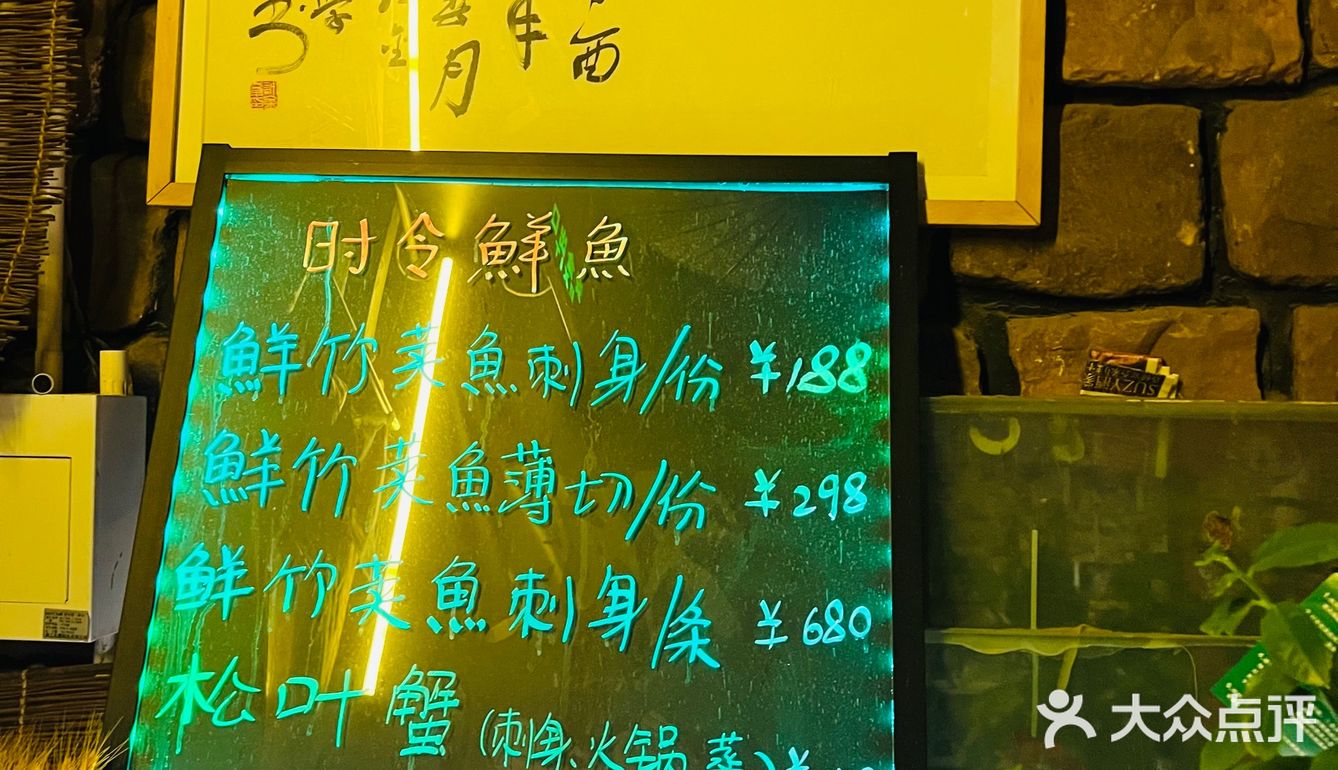 年 酉
春月
时令鮮魚
鮮竹荚魚刺身/份 ¥188
鮮竹荚魚薄切/份 ¥298
鮮竹荚魚刺身/条 ¥680
松叶蟹(刺身、火锅、蒸)¥
大众点评